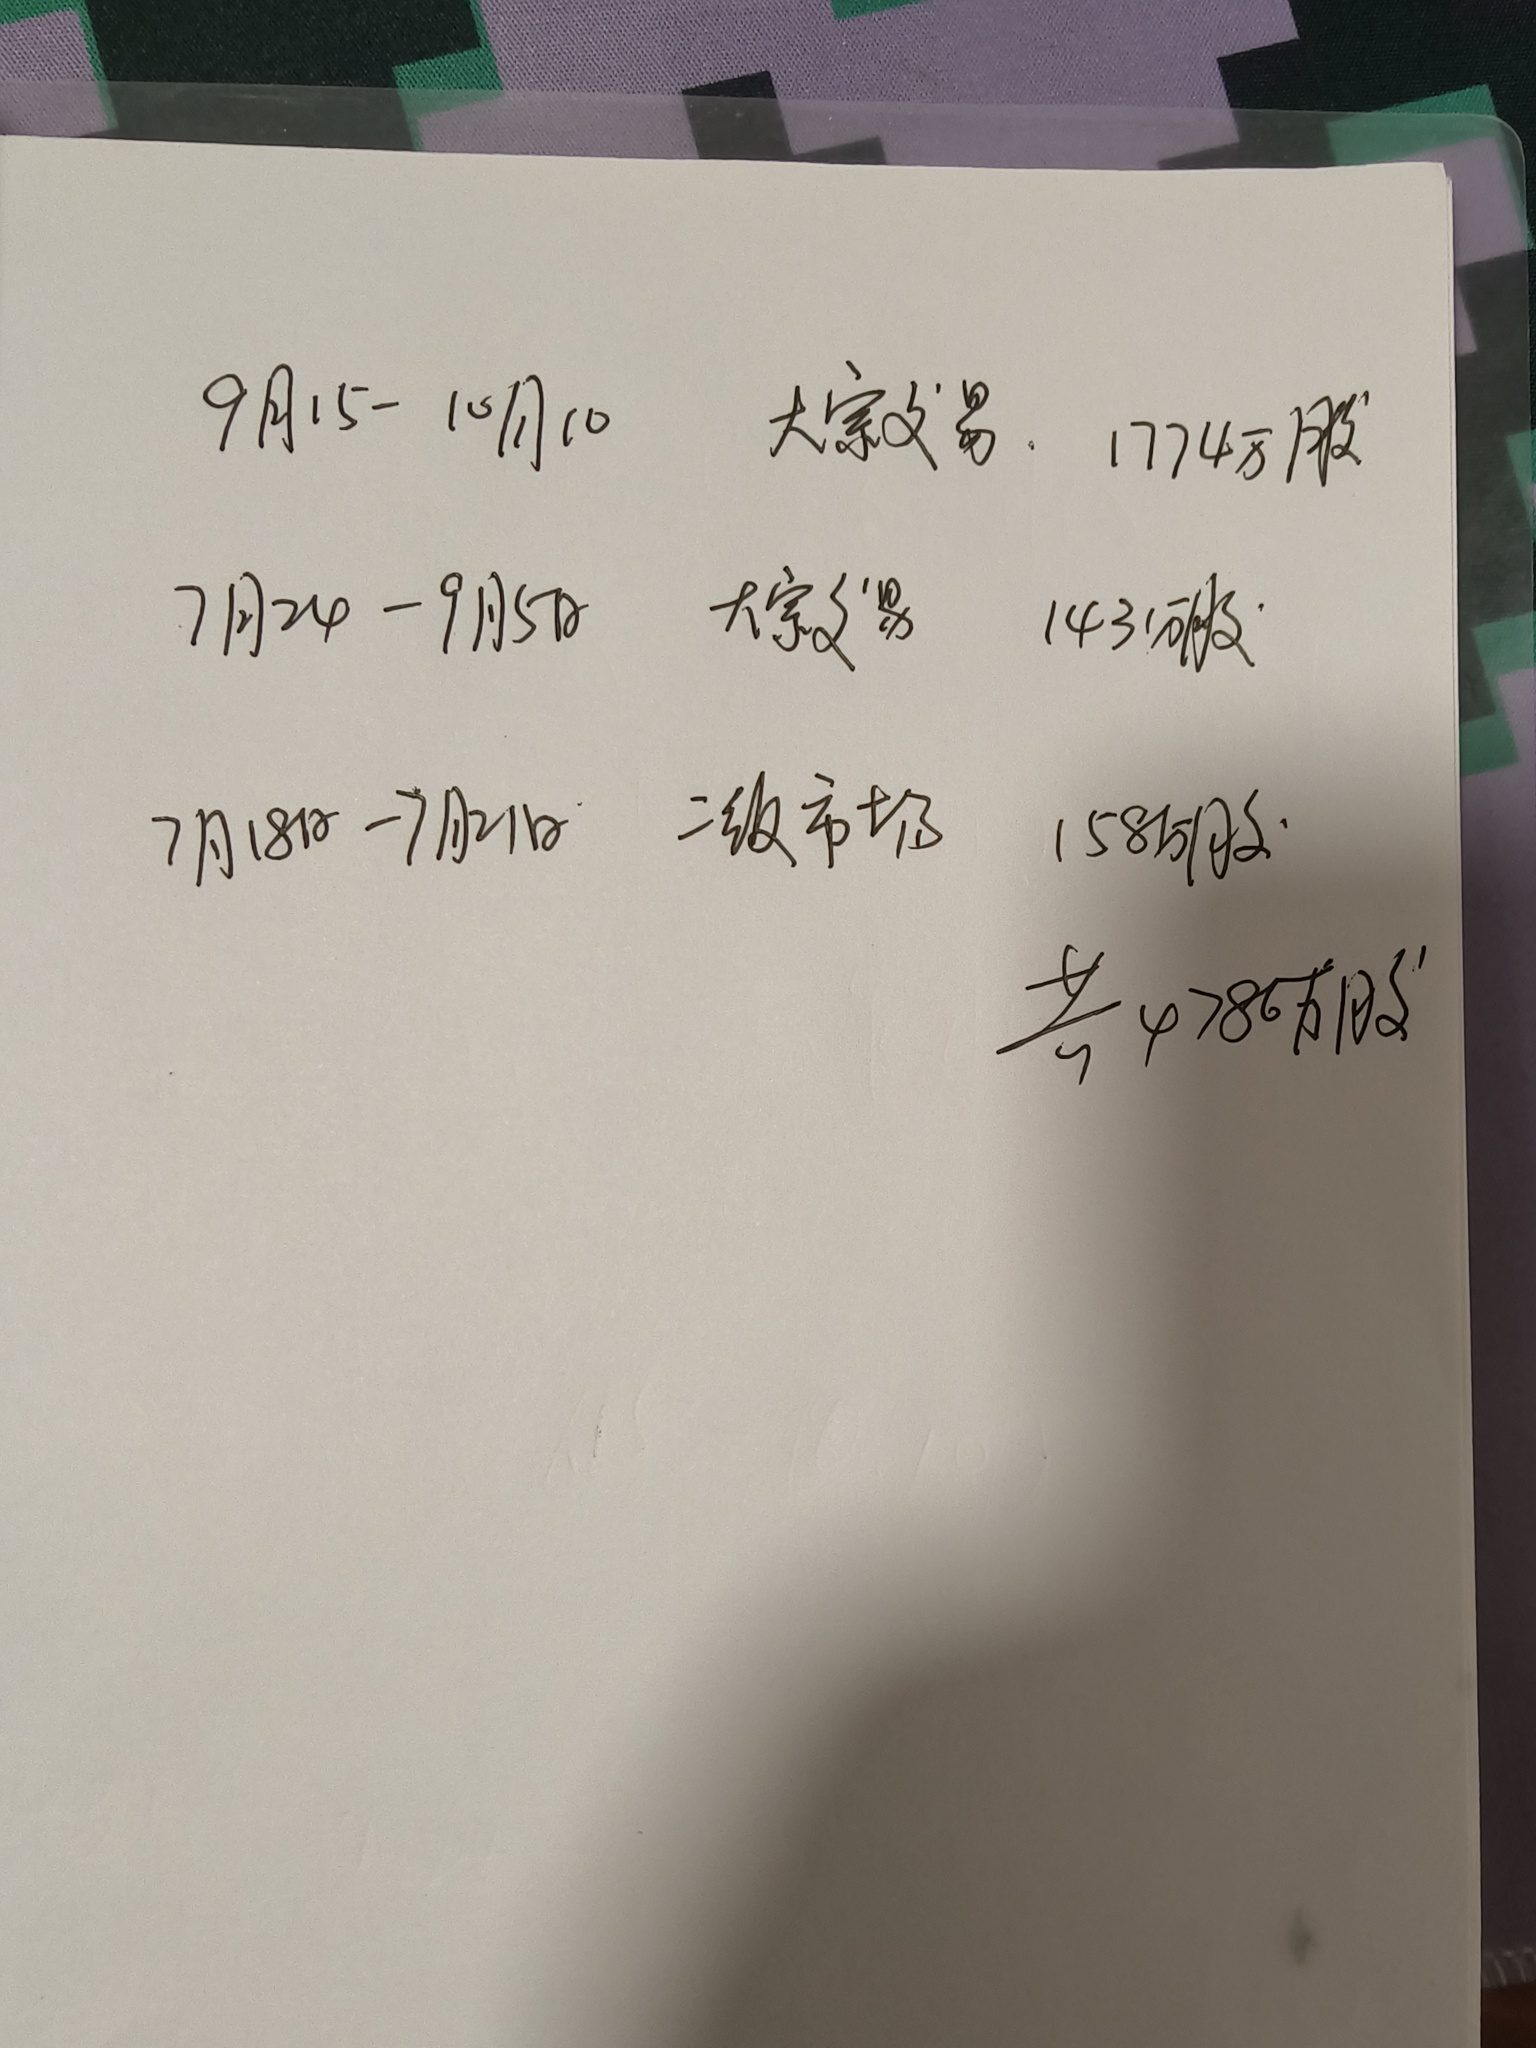 9月15- 10月10 大宗交易. 1774万股
7月24-9月5日 大宗交易 1431万股.
7月18日-7月21日 二级市场 1581万股.
共4786万股